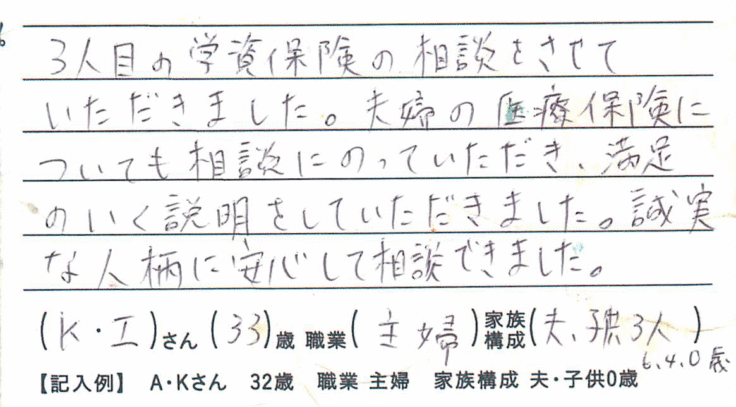 3人目の学資保険の相談をさせて
いただきました。夫婦の医療保険に
ついても相談にのっていただき、満足
のいく説明をしていただきました。誠実
な人柄に安心して相談できました。
(K・I)さん (33)歳 職業(主婦)家族構成(夫、子供3人)
6.4.0歳
【記入例】 A・Kさん 32歳 職業 主婦 家族構成 夫・子供0歳